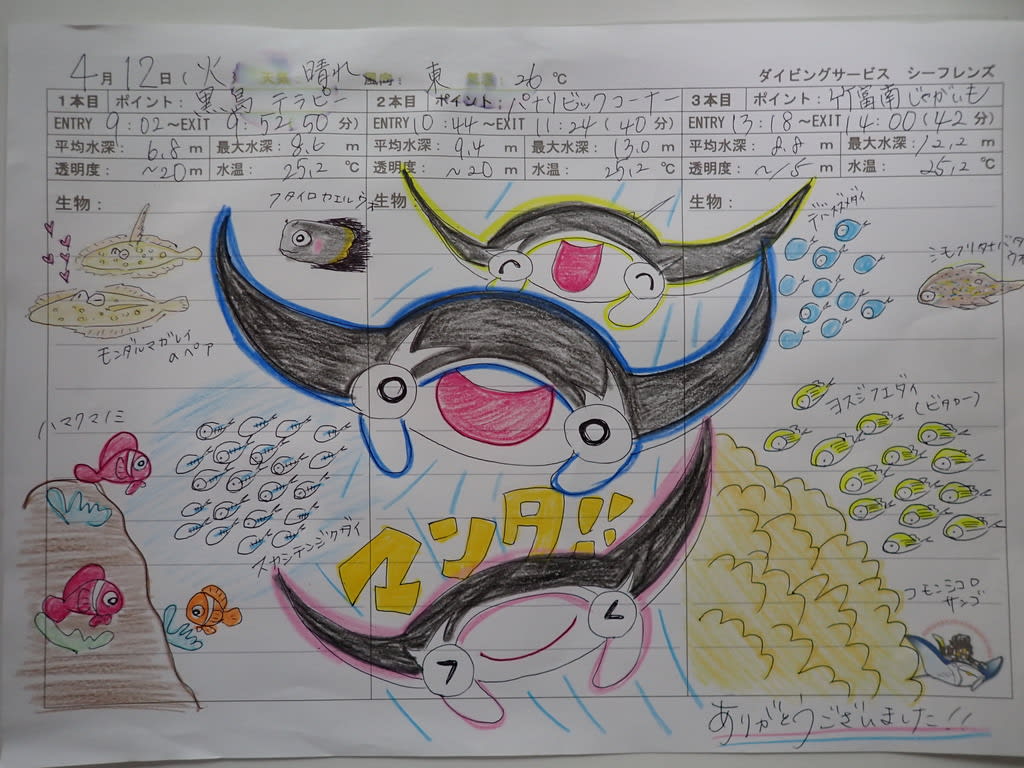 4月12日(火) 天気: 晴れ 風向: 東 26℃
ダイビングサービス シーフレンズ
1本目 ポイント: 黒島 テラピー
ENTRY 9:02~EXIT 9:52(50分)
平均水深: 6.8m 最大水深: 8.6m
透明度: ~20m 水温: 25.2℃
生物:
2本目 ポイント: パナリビックコーナー
ENTRY 10:44~EXIT 11:24(40分)
平均水深: 9.4m 最大水深: 13.0m
透明度: ~20m 水温: 25.2℃
生物
3本目 ポイント: 竹富南じゃがいも
ENTRY 13:18~EXIT 14:00(42分)
平均水深: 8.8m 最大水深: 12.2m
透明度: ~15m 水温: 25.2℃
生物:
フタイロカエルウオ
モンダルマガレイ
のペア
ハマクマノミ
スカシテンジクダイ
マンタ!!
デバスズメダイ
シモフリタナバタ
ウオ
ヨスジフエダイ
(ビタロー)
コモンシコロ
サンゴ
ありがとうございました!!